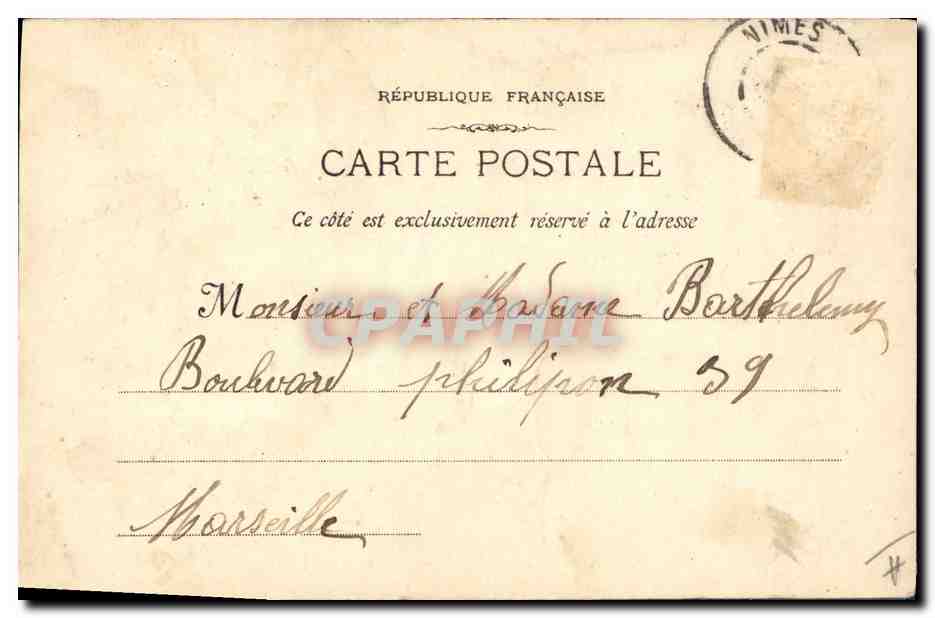 NIMES
RÉPUBLIQUE FRANÇAISE
CARTE POSTALE
Ce côté est exclusivement réservé à l'adresse
Monsieur et Madame Barthelemy
CPAPHIL
Boulevard philipon 39
Marseille
#